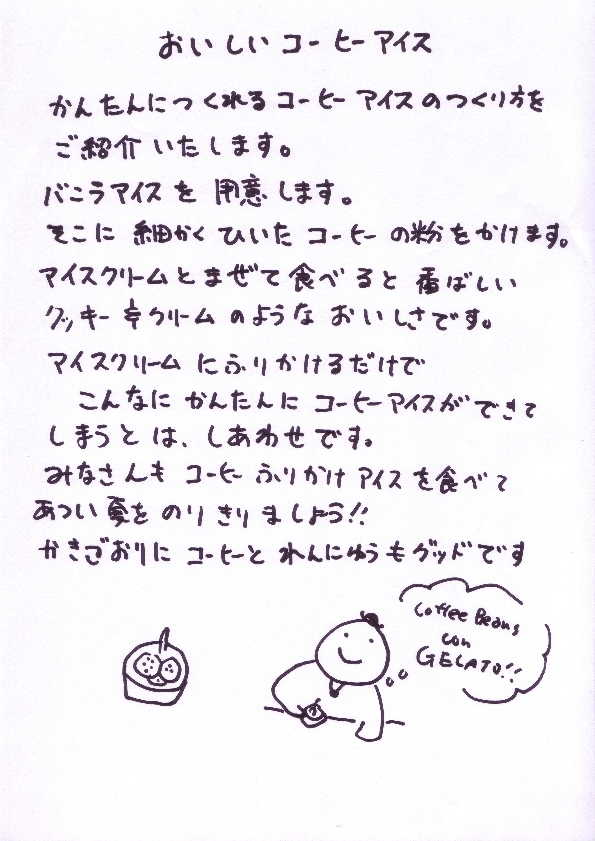 おいしいコーヒーアイス
かんたんにつくれるコーヒーアイスのつくり方を
ご紹介いたします。
バニラアイスを用意します。
そこに細かくひいたコーヒーの粉をかけます。
アイスクリームとまぜて食べると香ばしい
クッキー&クリームのようなおいしさです。
アイスクリームにふりかけるだけで
こんなにかんたんにコーヒーアイスができて
しまうとは、しあわせです。
みなさんもコーヒーふりかけアイスを食べて
あつい夏をのりきりましょう!!
かきごおりにコーヒーとれんにゅうもグッドです
Coffee Beans
con
GELATO!!